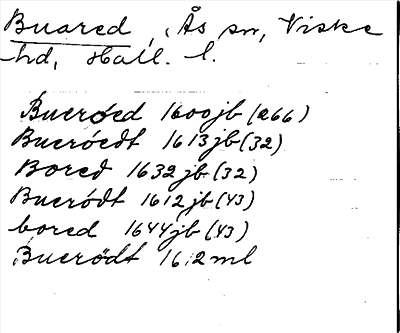 Buared, Ås sn, Viske
hd, Hall. l.
Bueröed 1600 jb (266)
Bueröedt 1613 jb (32)
Bored 1632 jb (32)
Bueródt 1612 jb (43)
bored 1644 jb (43)
Bueródt 1612 ml